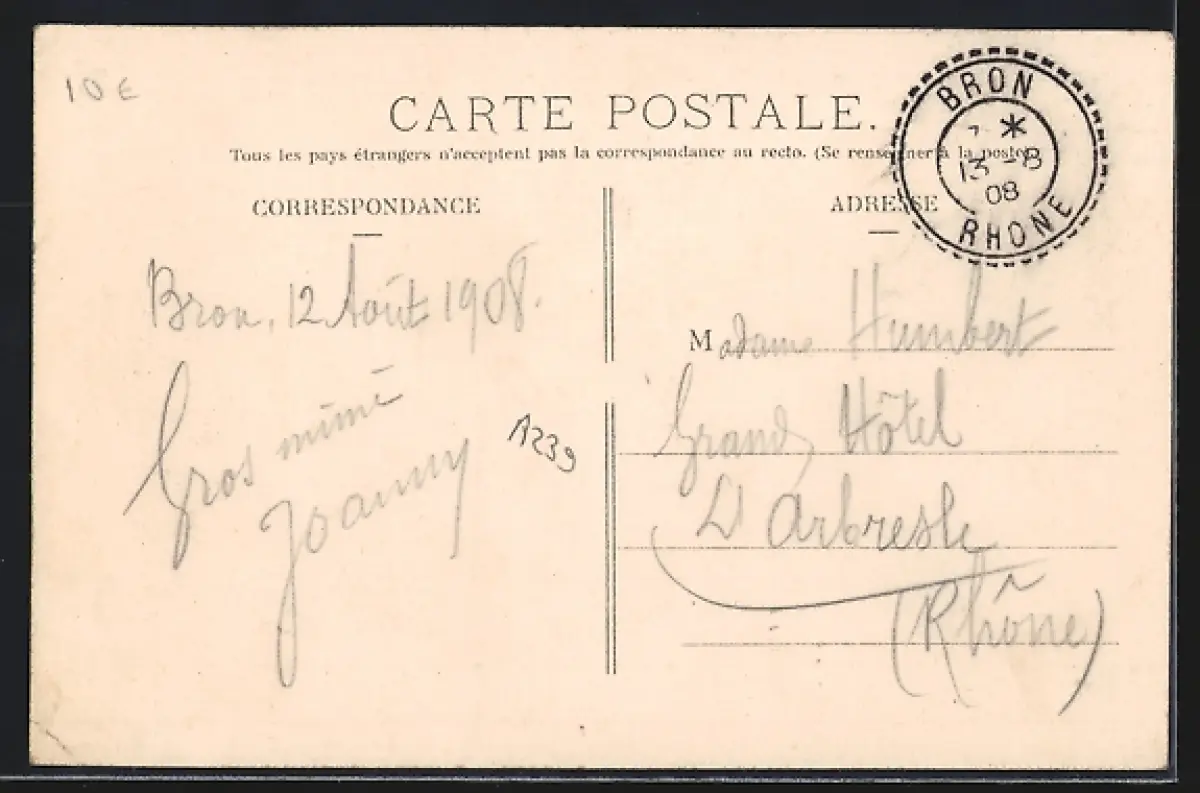 10 €
CARTE POSTALE.
Tous les pays étrangers n'acceptent pas la correspondance au recto. (Se renseigner à la poste)
CORRESPONDANCE
Bron, 12 Août 1908.
Gros mimi
Joanny
A239
ADRESSE
Madame Humbert
Grand Hôtel
L'Arbresle
(Rhône)
BRON
*
13 -8
08
RHONE